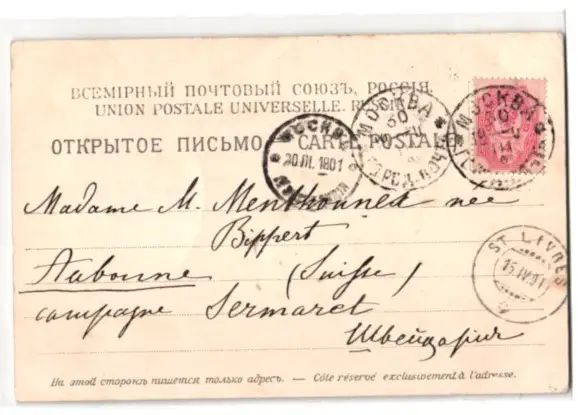 ВСЕМІРНЫЙ ПОЧТОВЫЙ СОЮЗЪ, РОССІЯ.
UNION POSTALE UNIVERSELLE. RUSSIE
ОТКРЫТОЕ ПИСЬМО - CARTE POSTALE
МОСКВА
20.III.1901
МОСКВА
50
МОСКВА
50
Madame M. née
Bippert
Aubonne (Suisse)
campagne Sermaret
Швейцарія
ST LIVRES
15.IV.01
На этой сторонѣ пишется только адресъ. — Côté réservé exclusivement à l'adresse.